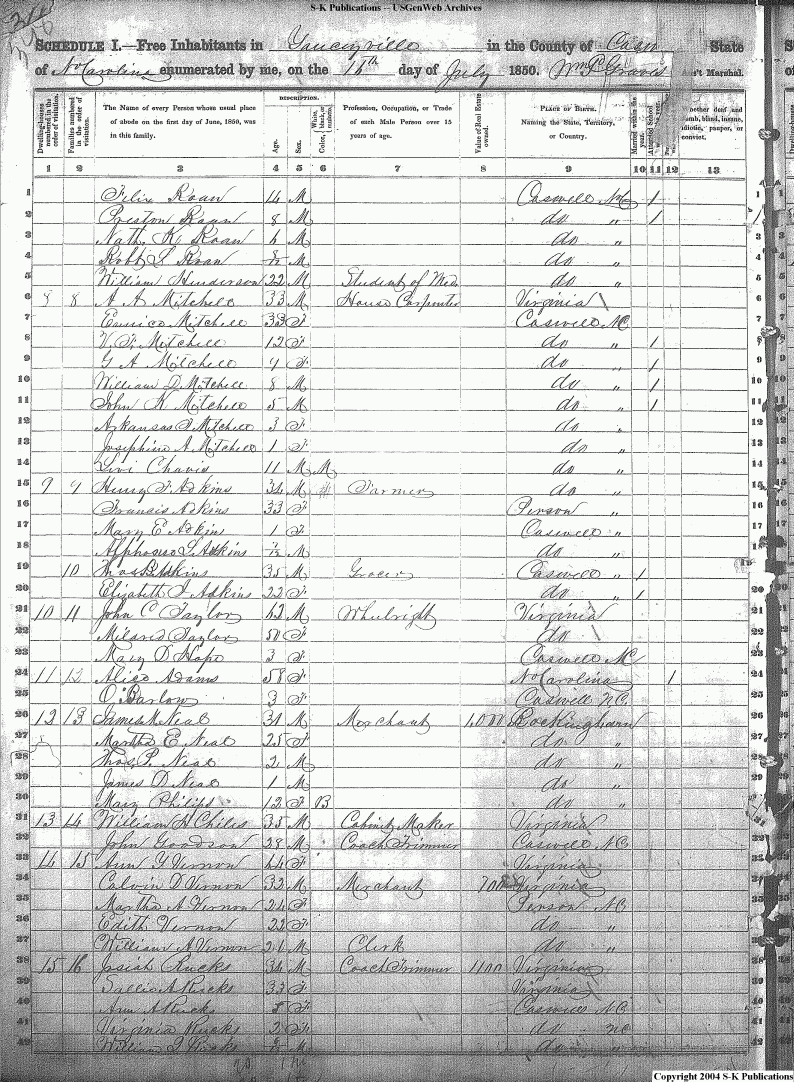 S-K Publications -- USGenWeb Archives
SCHEDULE I.—Free Inhabitants in Yanceyville in the County of Casw State
of No Carolina enumerated by me, on the 16th day of July 1850. Wm P. Graves Ass't Marshal.
Dwelling-houses numbered in the order of visitation. Families numbered in the order of visitation. The Name of every Person whose usual place of abode on the first day of June, 1850, was in this family. DESCRIPTION. Age. Sex. Color, White, black, or mulatto. Profession, Occupation, or Trade of each Male Person over 15 years of age. Value of Real Estate owned. PLACE OF BIRTH. Naming the State, Territory, or Country. Married within the year. Attended School Whether deaf and dumb, blind, insane, idiotic, pauper, or convict.
1 2 3 4 5 6 7 8 9 10 11 12 13
1 Felix Roan 14 M Caswell NC 1 1
2 Preston Roan 8 M do " 1 2
3 Nath. K. Roan 4 M do " 3
4 Robt S Roan M do " 4
5 William Henderson 22 M Student of Med. do " 5
6 8 8 A A Mitchell 33 M House Carpenter Virginia 6
7 Mitchell 33 F Caswell NC 7
8 V. F. Mitchell 12 F do " 1 8
9 G A Mitchell 9 F do " 1 9
10 William D. Mitchell 8 M do " 1 10
11 John K Mitchell 5 M do " 1 11
12 Arkansas Mitchell 3 F do " 12
13 Josephine A. Mitchell 1 F do 13
14 Levi Chavis 11 M M do " 14
15 9 9 Henry F. Adkins 34 M Farmer do " 15
16 Francis Adkins 33 F Person " 16
17 Mary E Adkins 1 F Caswell " 17
18 Alphonso Adkins M do " 18
19 10 Thos B Adkins 35 M Grocer Caswell " 1
20 Elizabeth J Adkins 22 F do " 1 20
21 10 11 John C Taylor 42 M Whulright Virginia 21
22 Mildred Taylor 50 F do 22
23 Mary D Hope 3 F Caswell NC 23
24 11 12 Alice Adams 58 F No Carolina 1 24
25 O. Barlow 3 F Caswell NC. 25
26 12 13 James M Neal 31 M Merchant 1,000 Rockingham 26
27 Martha E. Neal 25 F do " 27
28 Thos P. Neal 2 M do " 28
29 James D Neal 1 M do " 29
30 Mary Philips 12 F B do "
31 13 14 William H Chiles 35 M Cabinet Maker Virginia
32 John Goodson 28 M Coach Trimmer Caswell NC 32
33 14 15 Ann Y Vernon 44 F Virginia 33
34 Calvin D. Vernon 32 M Merchant 700 Virginia 34
35 Martha A. Vernon 24 F Person NC 35
36 Edith Vernon 22 F do " 36
37 William A. Vernon 21 M Clerk do " 37
38 15 16 Josiah Rucks 34 M Coach Trimmer 1100 Virginia 38
39 Sallie A Rucks 33 F Virginia 39
40 Ann A Rucks 5 F Caswell NC 40
41 Virginia Rucks 2 F do NC 41
42 William J Rucks M do " 42
Copyright 2004 S-K Publications